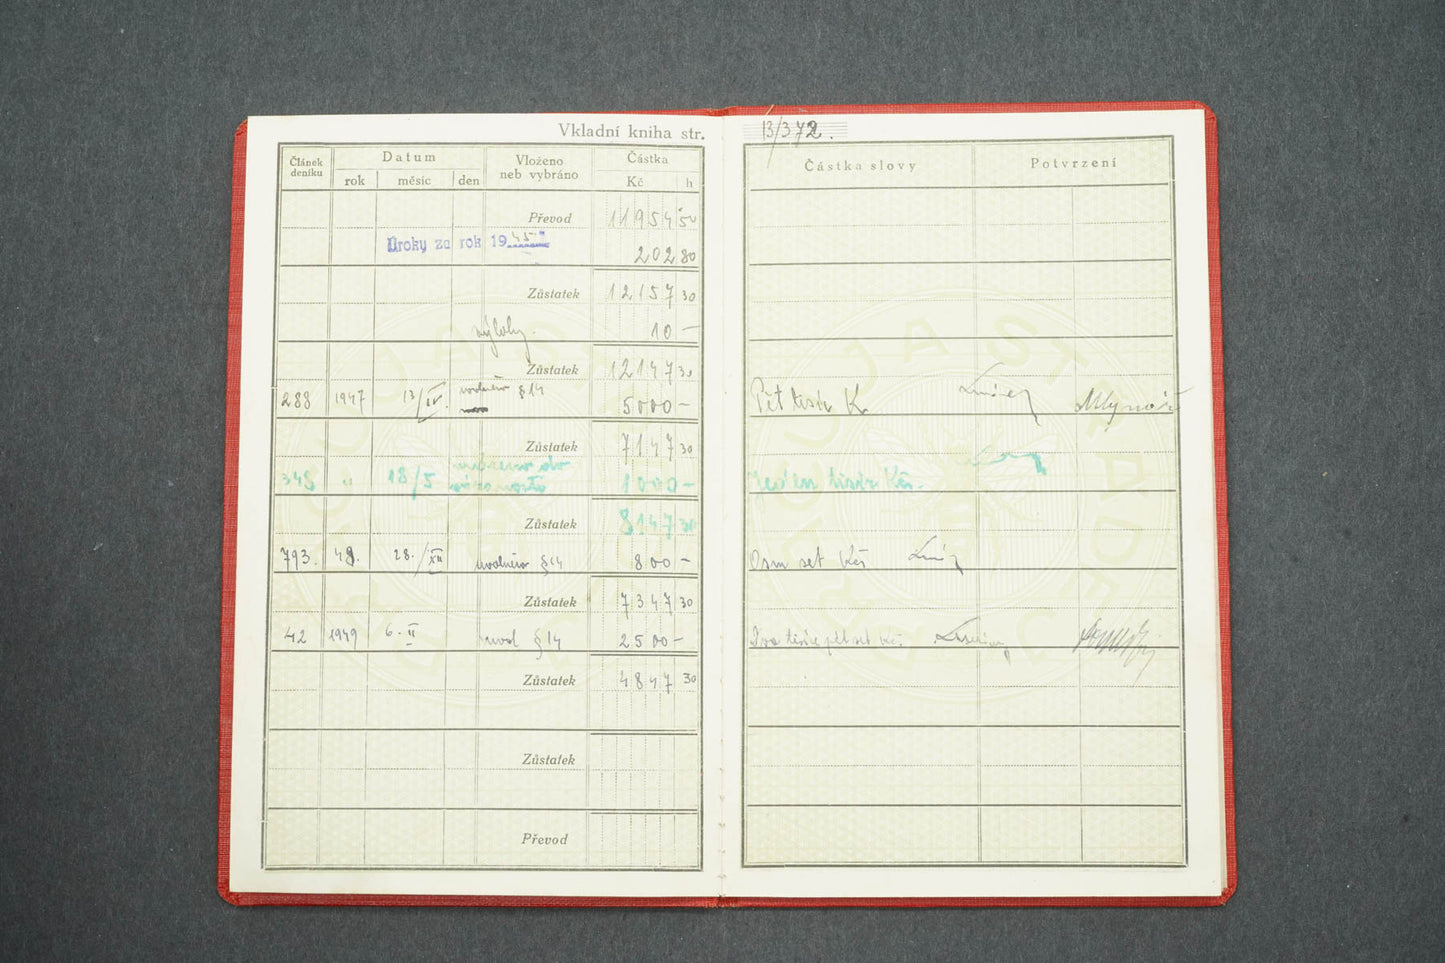 Vkladní kniha str. 13/372.
Článek deníku Datum Vloženo neb vybráno Částka Částka slovy Potvrzení
rok měsíc den Kč h
Převod 11954 50
Úroky za rok 1945 202 80
Zůstatek 12157 30
výlohy. 10 –
Zůstatek 12147 30
288 1947 13/IV. uvolněno §14 5000 – Pět tisíc K Mlynář
Zůstatek 7147 30
348 " 18/5 1000 – Jeden tisíc Kčs.
Zůstatek 8147 30
793. 48. 28./XII uvolněno §14 800 – Osm set Kčs
Zůstatek 7347 30
42 1949 6. II uvol §14 2500 – Dva tisíce pět set Kčs.
Zůstatek 4847 30
Zůstatek
Převod